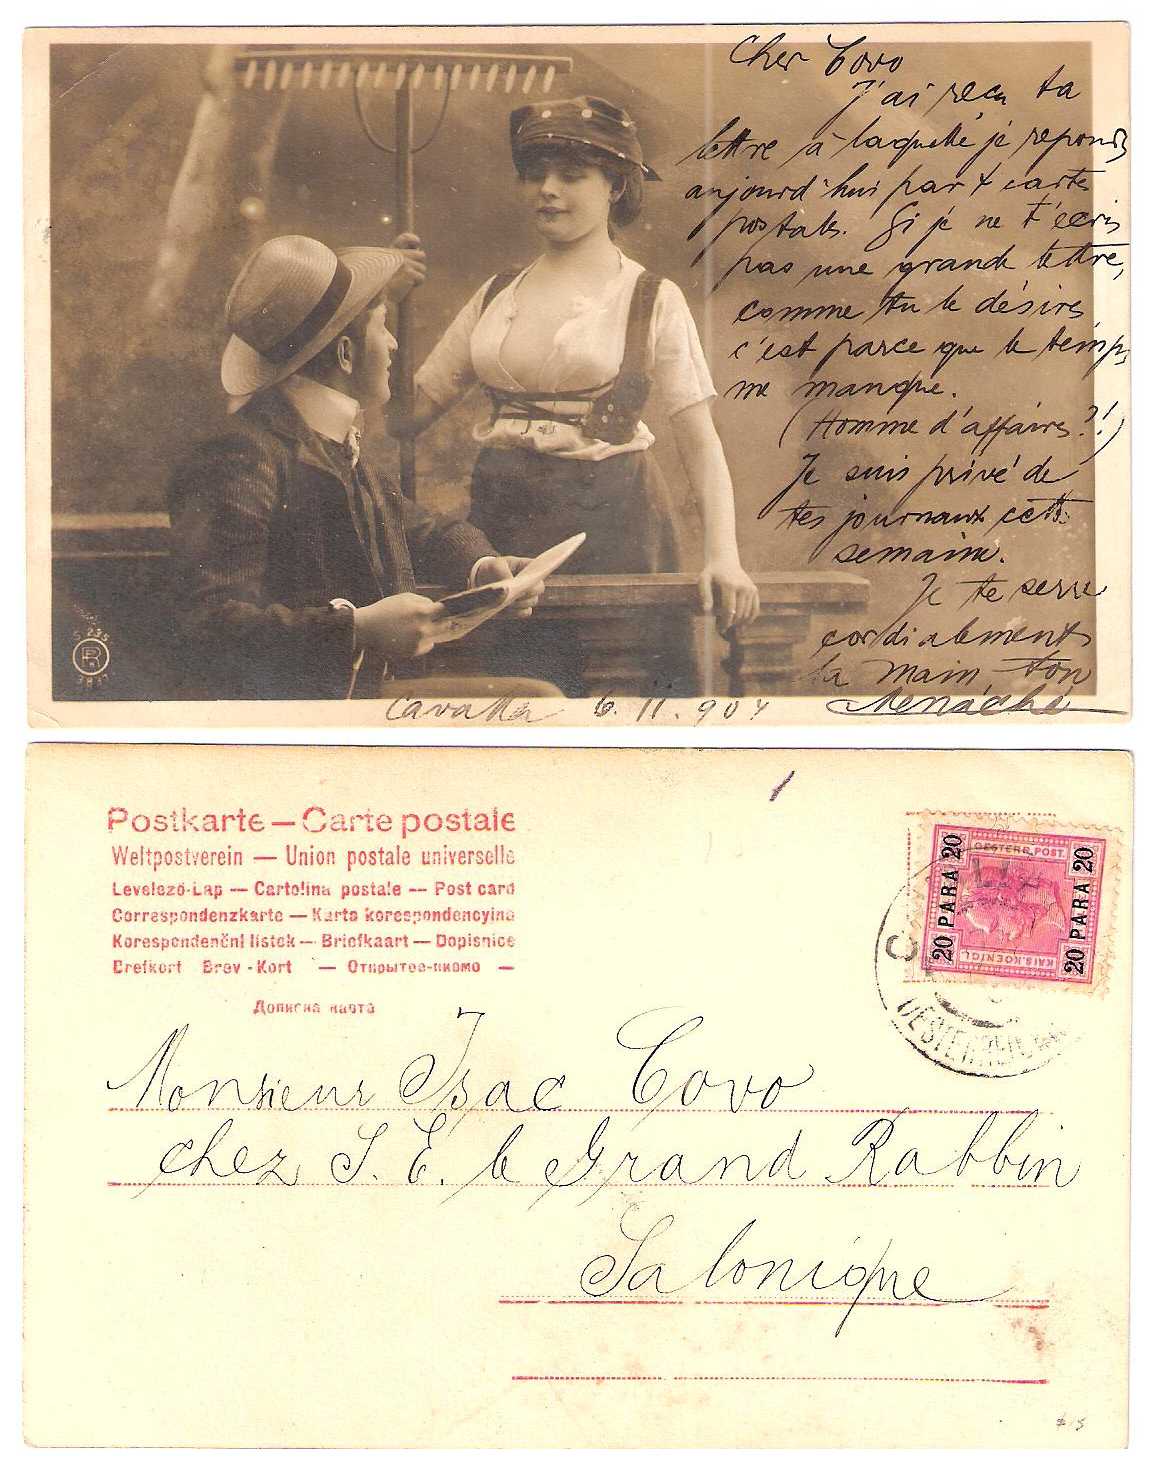 Cher Covo
J'ai reçu ta
lettre à laquelle je reponds
aujourd'hui par 4 cartes
postales. Si je ne t'écris
pas une grande lettre,
comme tu le désires
c'est parce que le temps
me manque.
(Homme d'affaires?!)
Je suis privé de
tes journaux cette
semaine.
Je te serre
cordialement
la main ton
Menaché
Cavalla 6.11.904
S 235
3837
Postkarte — Carte postale
Weltpostverein — Union postale universelle
Levelező-Lap — Cartolina postale — Post card
Correspondenzkarte — Karta korespondencyjna
Korespondenční lístek — Briefkaart — Dopisnice
Brefkort Brev-Kort — Открытое письмо —
Дописна карта
OESTERR. POST.
20 PARA 20
20 PARA 20
KAIS. KOENIGL.
OESTERREICH
Monsieur Isac Covo
chez S. E. le Grand Rabbin
Salonique